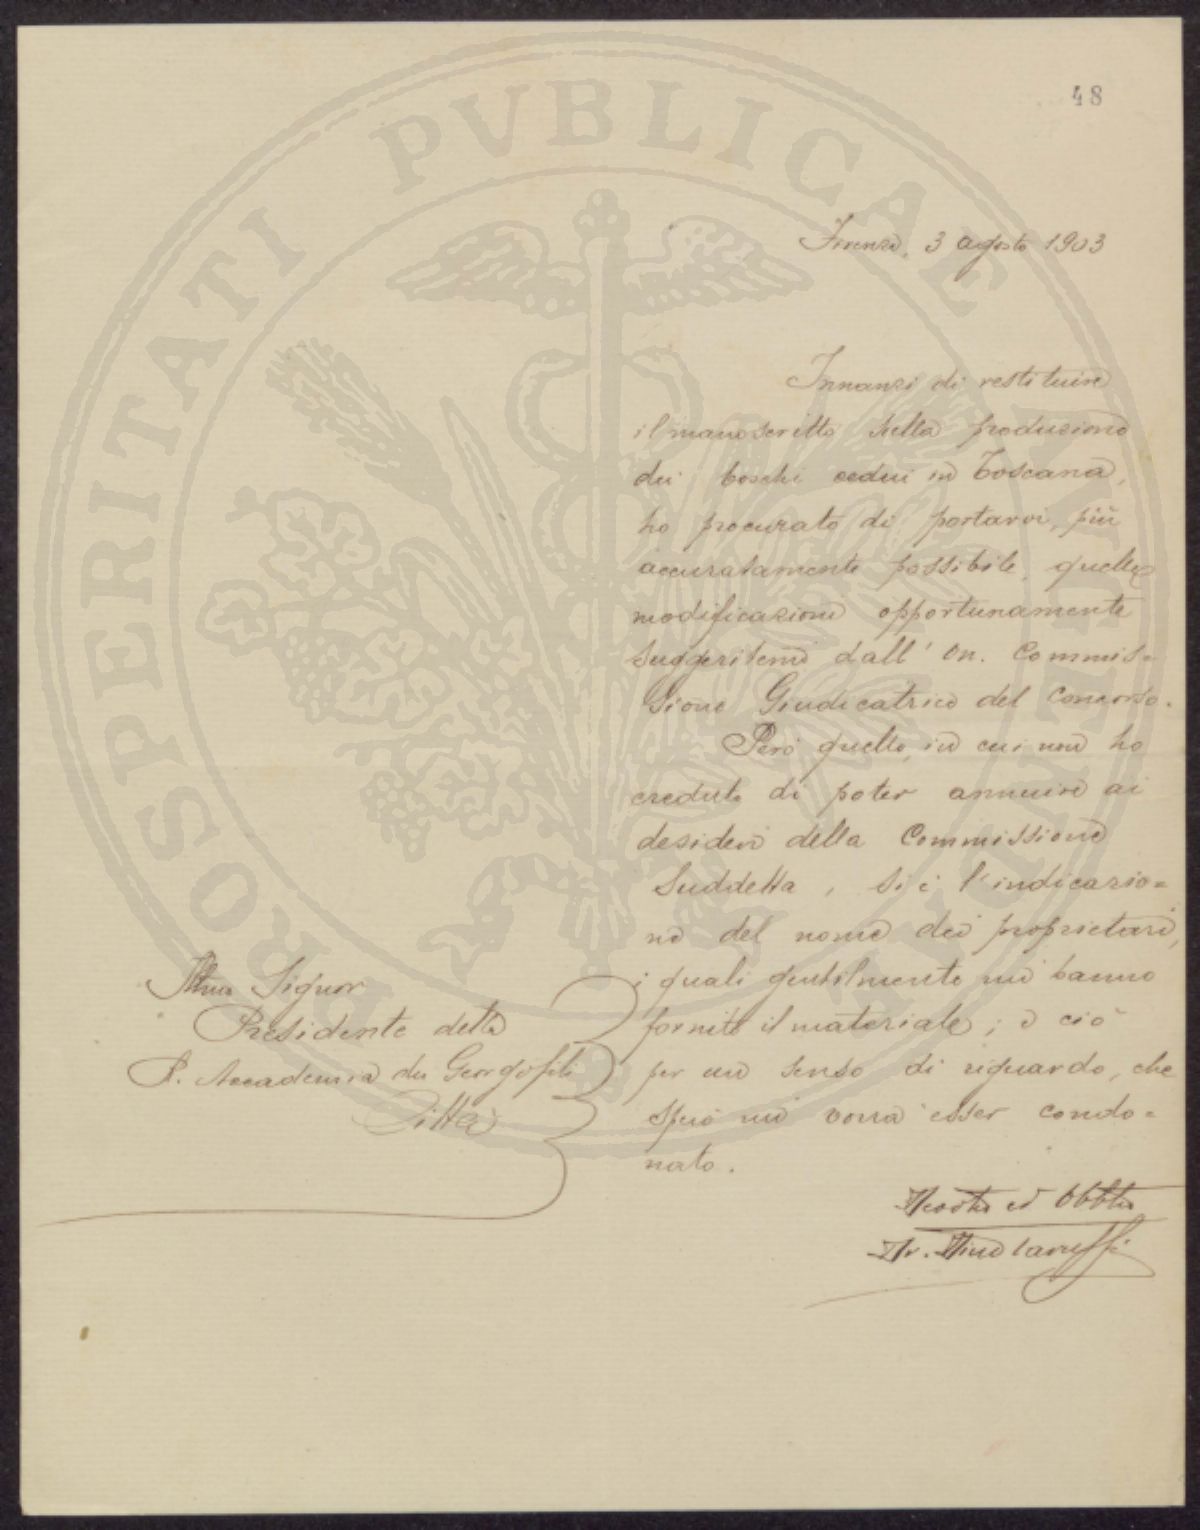 48
PROSPERITATI PUBLICAE
Firenze, 3 agosto 1903
Innanzi di restituire
il manoscritto sulla produzione
dei boschi cedui in Toscana,
ho procurato di portarvi, più
accuratamente possibile, quelle
modificazioni opportunamente
suggeritemi dall' On. Commis=
sione Giudicatrice del Concorso.
Però quello, in cui non ho
creduto di poter annuire ai
desideri della Commissione
suddetta, si è l'indicazio=
ne del nome dei proprietari,
i quali gentilmente mi hanno
fornito il materiale; e ciò
per un senso di riguardo, che
spero mi vorrà esser condo=
nato.
Illmo Signor
Presidente della
R. Accademia dei Georgofili
Città
ed Obblmo
Dr.